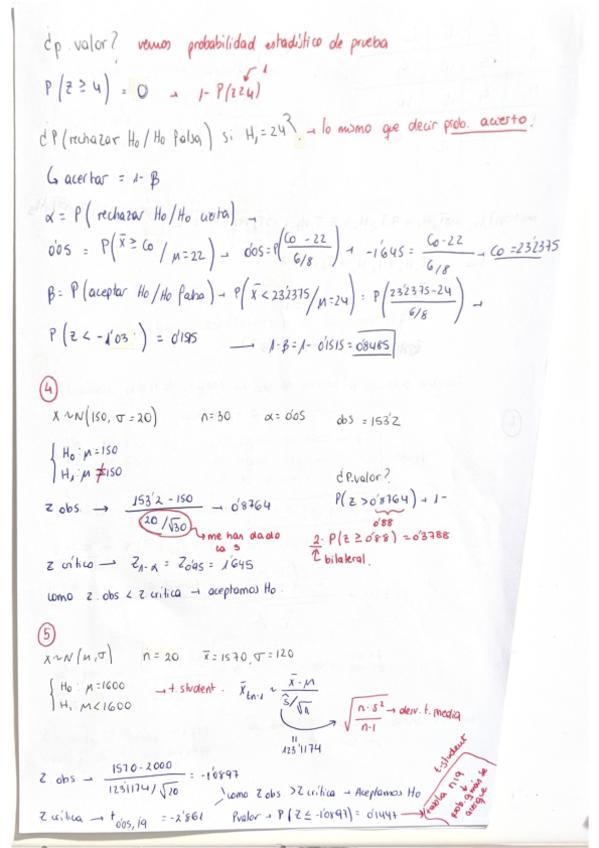 ¿p.valor? vemos probabilidad estadístico de prueba
P(Z ≥ 4) = 0 → 1 - P(Z≤4) 1
¿P(rechazar H0/H0 falsa) si H1=24? → lo mismo que decir prob. acierto.
↳ acertar = 1-β
α = P(rechazar H0/H0 cierta) →
0'05 = P(x̄ ≥ C0 / μ=22) → 0'05 = P(C0-22 / 6/8) → -1'645 = C0-22 / 6/8 → C0=23'2375
β = P(aceptar H0/H0 falsa) → P(x̄ < 23'2375/μ=24) = P(23'2375-24 / 6/8) →
P(Z < -1'03) = 0'1515 → 1-β = 1 - 0'1515 = 0'8485
④
X~N(150, σ=20) n=30 α=0'05 obs = 153'2
H0: μ=150
H1: μ≠150
¿P.valor?
Z obs → 153'2 - 150 / 20/√30 → 0'8764
P(Z>0'8764) → 1-
0'88
me han dado la s
2· P(Z ≥ 0'88) = 0'3788
bilateral.
Z crítico → Z1-α = Z0'95 = 1'645
como Z obs < Z crítico → aceptamos H0.
⑤
X~N(μ,σ) n=20 x̄=1570, σ=120
H0: μ=1600
H1: μ<1600
→ t.student. x̄ tn-1 ~ x̄-μ / ŝ/√n
√(n·s² / n-1) → desv. t. media
123'1174
Z obs → 1570-2000 / 123'1174/√20 = -1'0897
como Z obs > Z crítica → Aceptamos H0
Z crítica → t 0'05,19 = -2'861
Pvalor → P(Z ≤ -1'0897) = 0'1447 →
t.student
tabla n19
prob. q más se